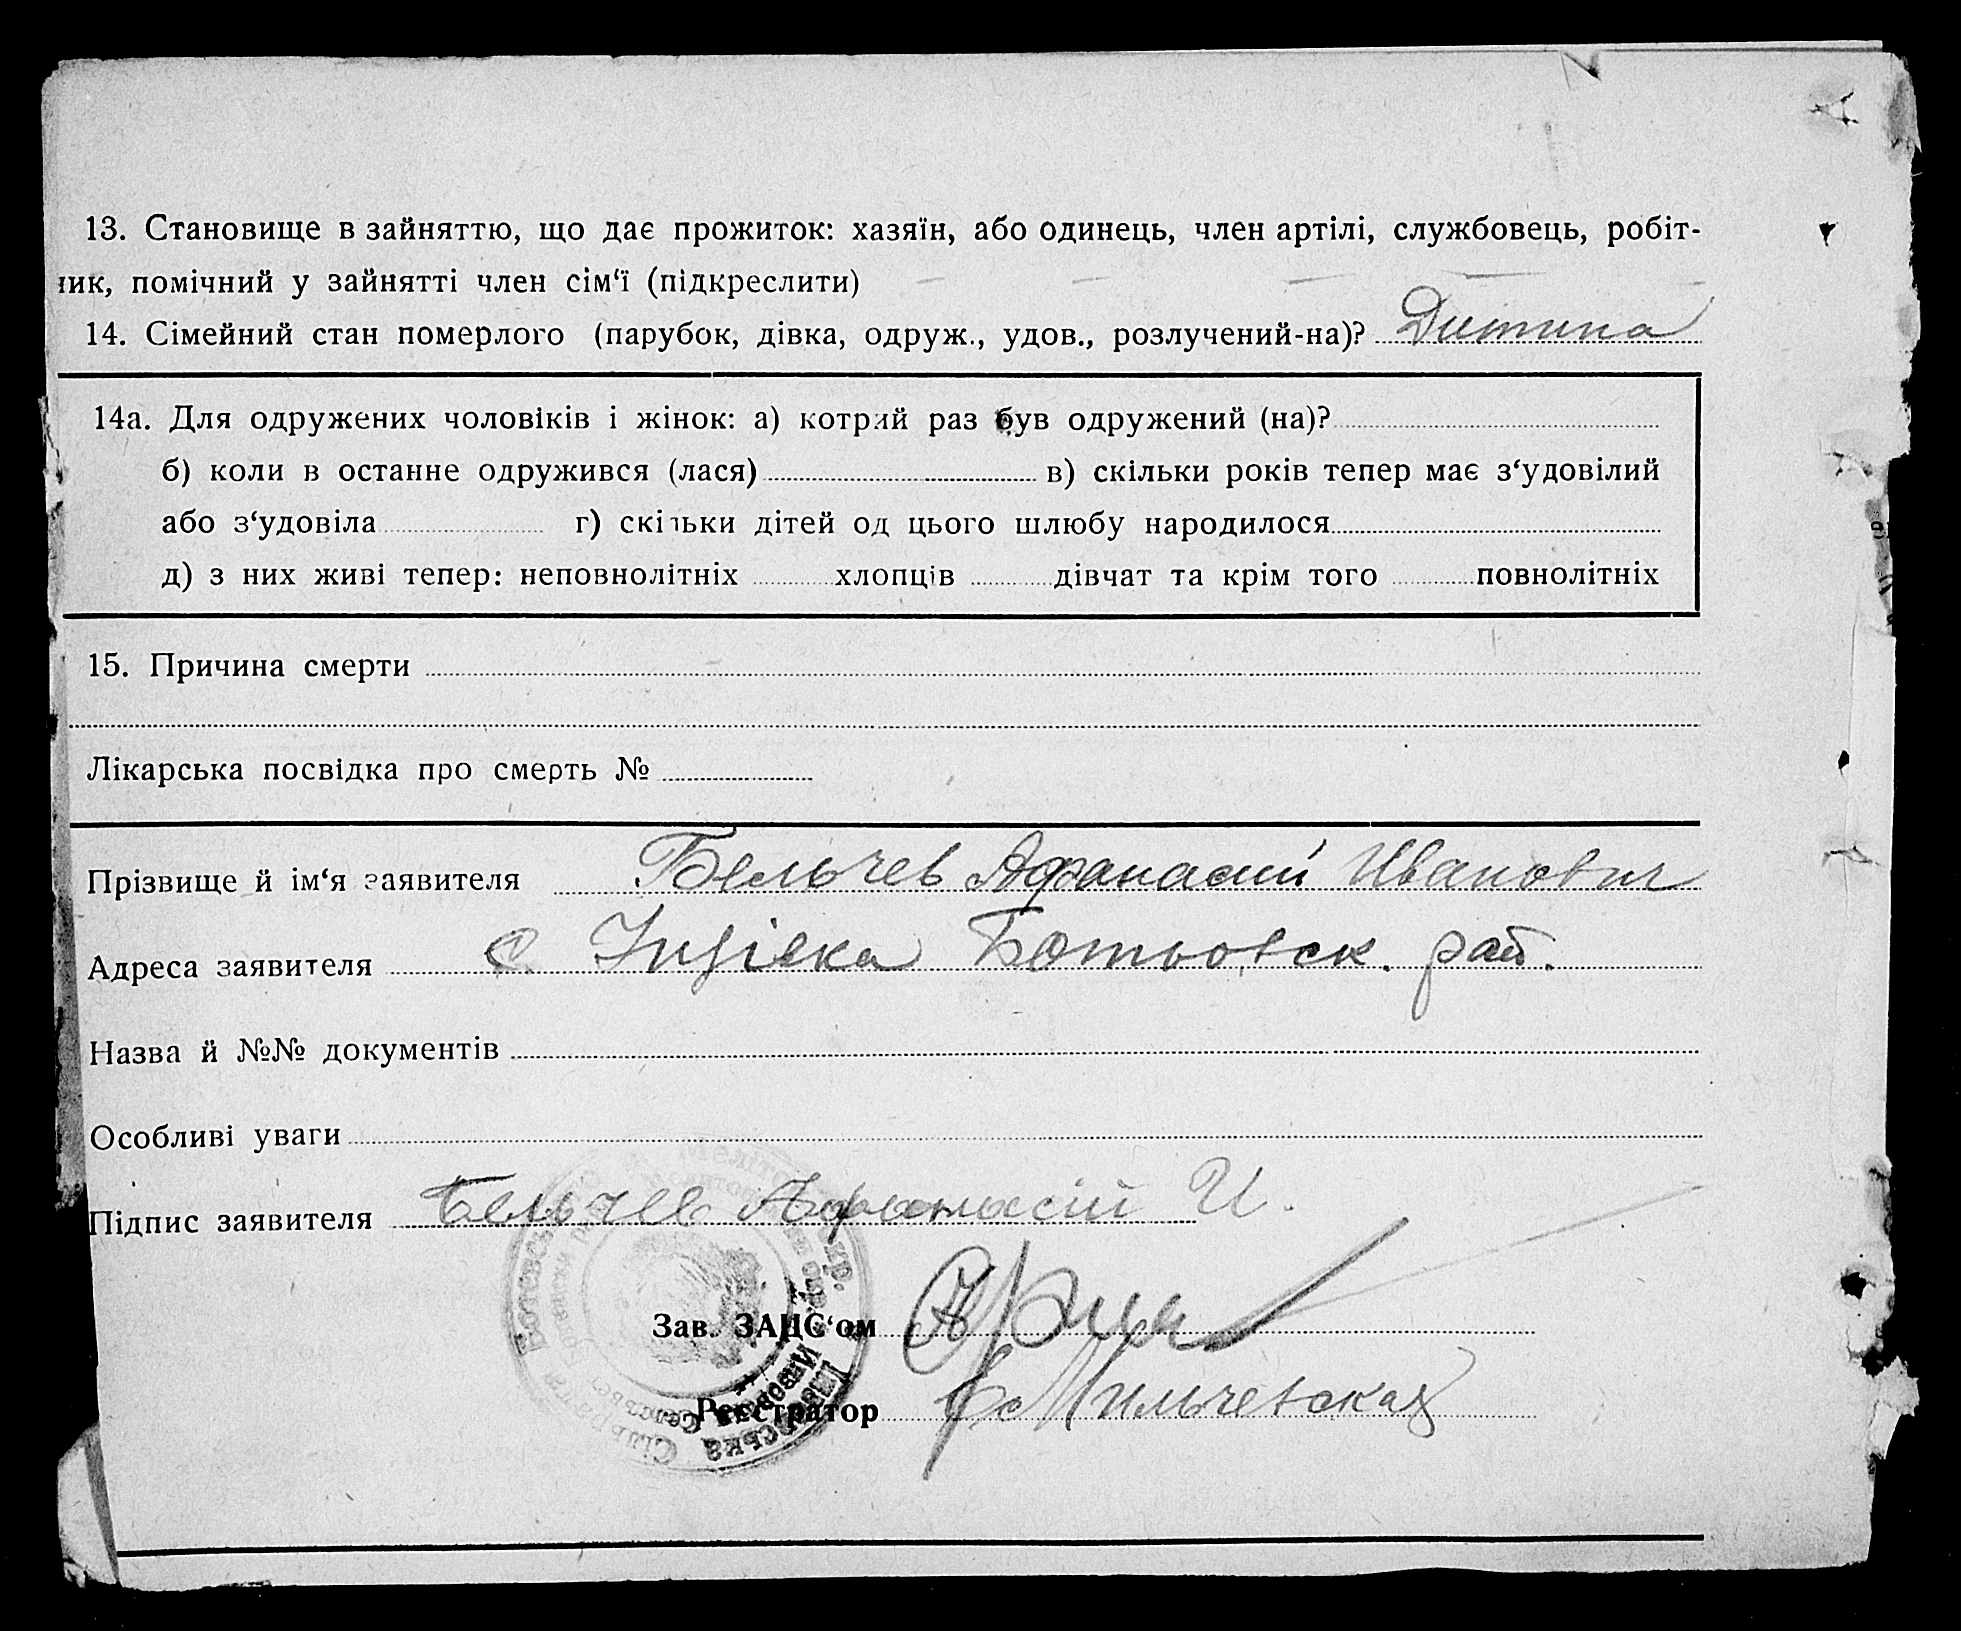 13. Становище в зайняттю, що дає прожиток: хазяїн, або одинець, член артілі, службовець, робіт-
ник, помічний у зайнятті член сім‘ї (підкреслити)
14. Сімейний стан померлого (парубок, дівка, одруж., удов., розлучений-на)? Дитина
14а. Для одружених чоловіків і жінок: а) котрий раз був одружений (на)?
б) коли в останне одружився (лася) в) скільки років тепер має з‘удовілий
або з‘удовіла г) скільки дітей од цього шлюбу народилося
д) з них живі тепер: неповнолітніх хлопців дівчат та крім того повнолітніх
15. Причина смерти
Лікарська посвідка про смерть №
Прізвище й ім‘я заявителя Бельчев Афанасий Иванович
Адреса заявителя с. Інзівка Ботьовск. рай.
Назва й №№ документів
Особливі уваги
Підпис заявителя Бельчев Афанасій И.
Зав. ЗАЦС‘ом
Реєстратор Мильчевская